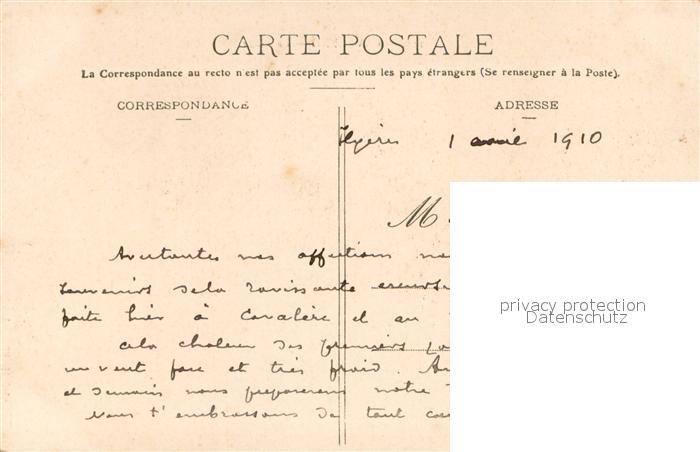 CARTE POSTALE
La Correspondance au recto n'est pas acceptée par tous les pays étrangers (Se renseigner à la Poste).
CORRESPONDANCE
ADRESSE
Hyères 1 avril 1910
M
nos affections
souvenirs de la ravissante
faite hier à Cavalère et au
la chaleur des premiers
un vent fort et très froid.
et demain nous preparerons notre
Nous t'embrassons de tout
privacy protection
Datenschutz